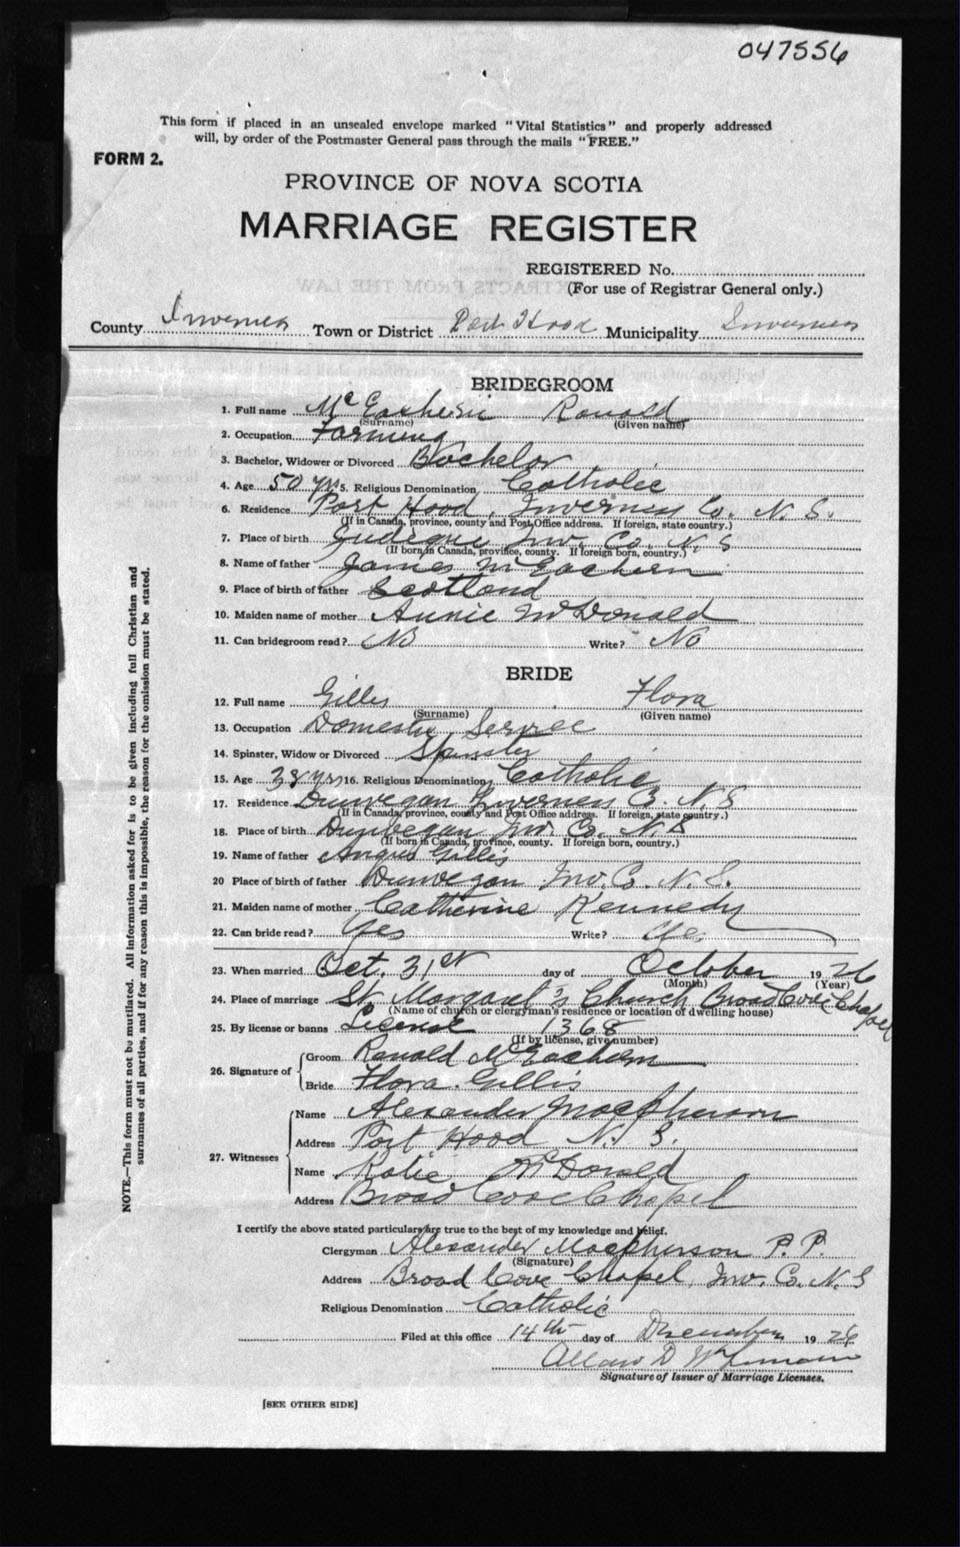 047556
This form if placed in an unsealed envelope marked "Vital Statistics" and properly addressed
will, by order of the Postmaster General pass through the mails "FREE."
FORM 2.
PROVINCE OF NOVA SCOTIA
MARRIAGE REGISTER
REGISTERED No.
(For use of Registrar General only.)
County Inverness Town or District Port Hood Municipality Inverness
BRIDEGROOM
1. Full name McEachern Ronald
(Surname) (Given name)
2. Occupation Farming
3. Bachelor, Widower or Divorced Bachelor
4. Age 50 yrs 5. Religious Denomination Catholic
6. Residence Port Hood, Inverness Co. N. S.
(If in Canada, province, county and Post Office address. If foreign, state country.)
7. Place of birth Judique Inv. Co. N. S
(If born in Canada, province, county. If foreign born, country.)
8. Name of father James McEachern
9. Place of birth of father Scotland
10. Maiden name of mother Annie McDonald
11. Can bridegroom read? No Write? No
BRIDE
12. Full name Gillis Flora
(Surname) (Given name)
13. Occupation Domestic Service
14. Spinster, Widow or Divorced Spinster
15. Age 38 yrs 16. Religious Denomination Catholic
17. Residence Dunvegan Inverness Co. N. S
(If in Canada, province, county and Post Office address. If foreign, state country.)
18. Place of birth Dunvegan Inv. Co. N. S
(If born in Canada, province, county. If foreign born, country.)
19. Name of father Angus Gillis
20 Place of birth of father Dunvegan Inv. Co. N. S.
21. Maiden name of mother Catherine Kennedy
22. Can bride read? Yes Write? Yes
23. When married Oct. 31st day of October 1926
(Month) (Year)
24. Place of marriage St. Margaret's Church Broad Cove Chapel
(Name of church or clergyman's residence or location of dwelling house)
25. By license or banns License 1368
(If by license, give number)
26. Signature of Groom Ronald McEachern
Bride Flora Gillis
27. Witnesses Name Alexander Macpherson
Address Port Hood N. S.
Name Katie McDonald
Address Broad Cove Chapel
I certify the above stated particulars are true to the best of my knowledge and belief.
Clergyman Alexander Macpherson P. P.
(Signature)
Address Broad Cove Chapel, Inv. Co. N. S
Religious Denomination Catholic
Filed at this office 14th day of December 1926
Allan D
Signature of Issuer of Marriage Licenses.
[SEE OTHER SIDE]
NOTE.—This form must not be mutilated. All information asked for is to be given including full Christian and
surnames of all parties, and if for any reason this is impossible, the reason for the omission must be stated.